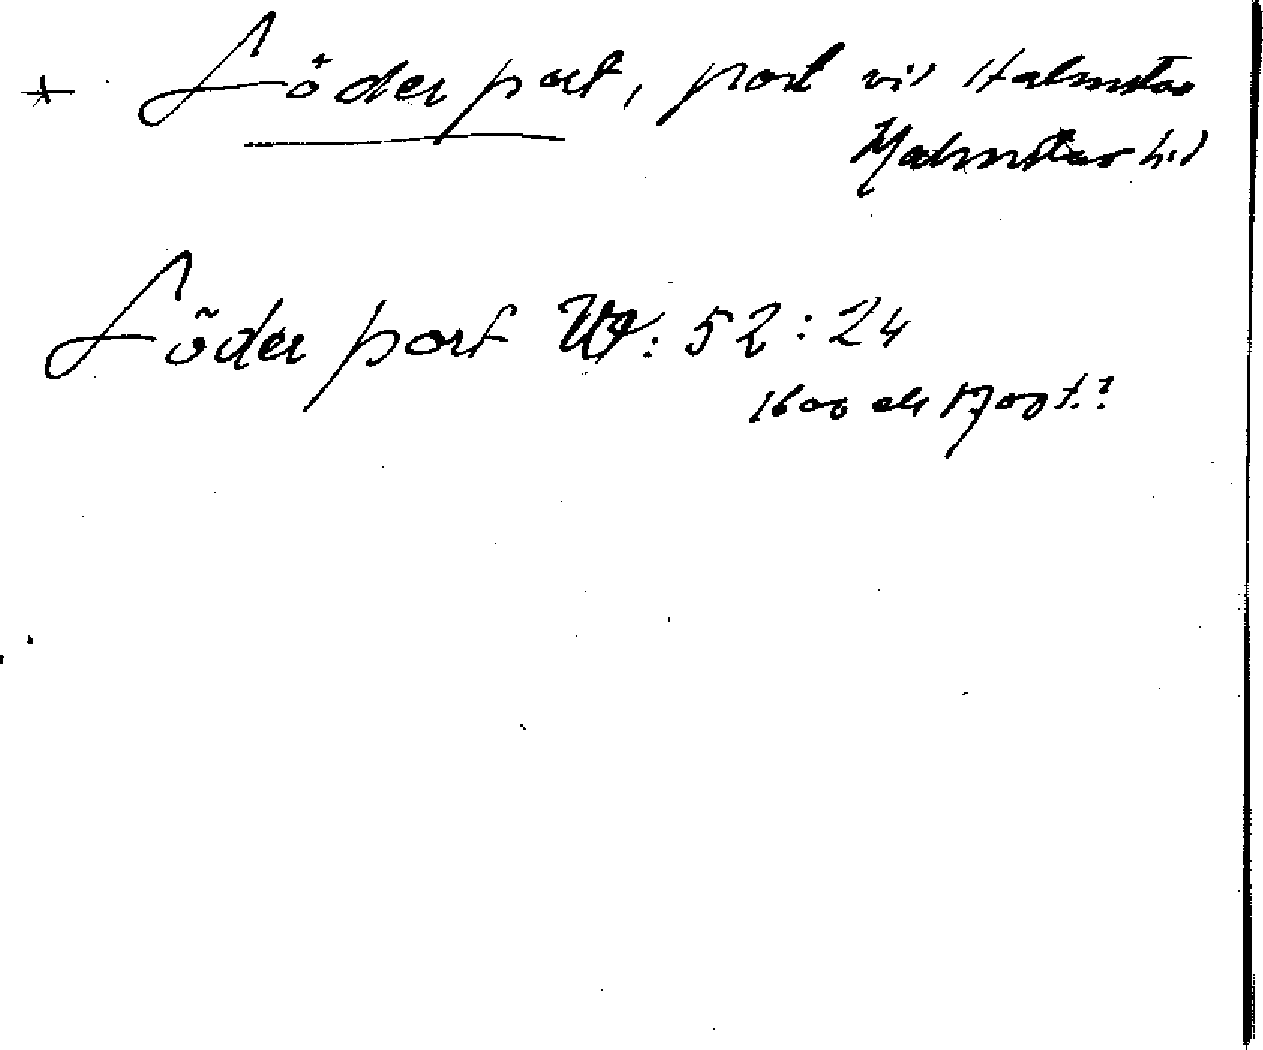 * Söder port, port vid Halmstad
Halmstad hd
Söder port Uf: 52:24
1600 el 1700 t.?